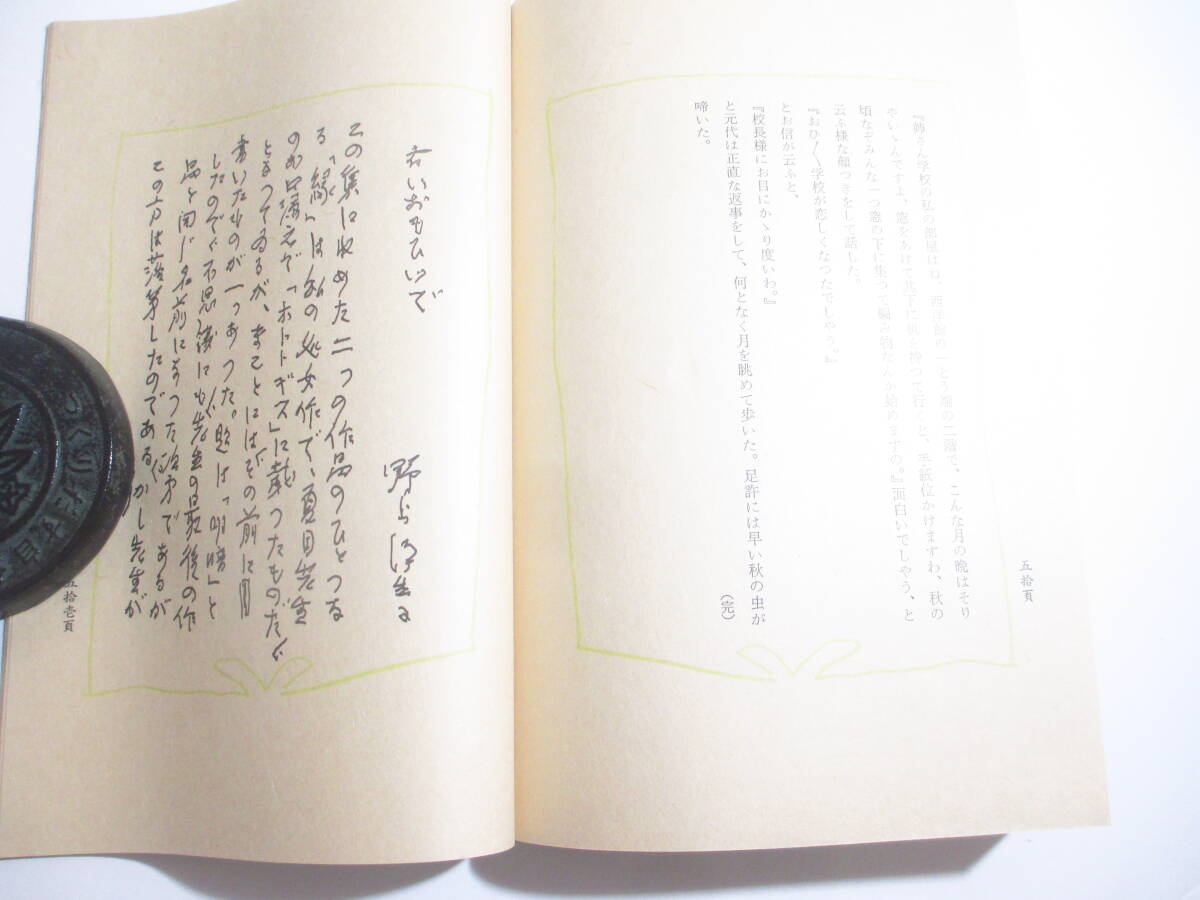 『姉さん学校の私の部屋はね、西洋館の一とう端の二階で、こんな月の晩はそり
やいゝんですよ、窓をあけて其下に机を持つて行くと、手紙位かけますわ、秋の
頃なぞみんな一つ窓の下に集つて編み物なんか始めますの。』面白いでしやう、と
云ふ様な顔つきをして話した。
『おひ〳〵学校が恋しくなつたでしやう。』
とお信が云ふと、
『校長様にお目にかゝり度いわ。』
と元代は正直な返事をして、何となく月を眺めて歩いた。足許には早い秋の虫が
啼いた。
(完)
五拾頁
古いおもひいで
野上彌生子
この集に収めた二つの作品のひとつな
る「縁」は私の処女作で、夏目先生
のお口添えで「ホトトギス」に載つたものだ
となつてゐるが、まことにはその前に
書いたものが一つあつた。題は「明暗」と
したので、不思議にも先生の最後の作
品と同じ名前になつた始末であるが
この方は落第したのである。しかし先生が
五拾壱頁